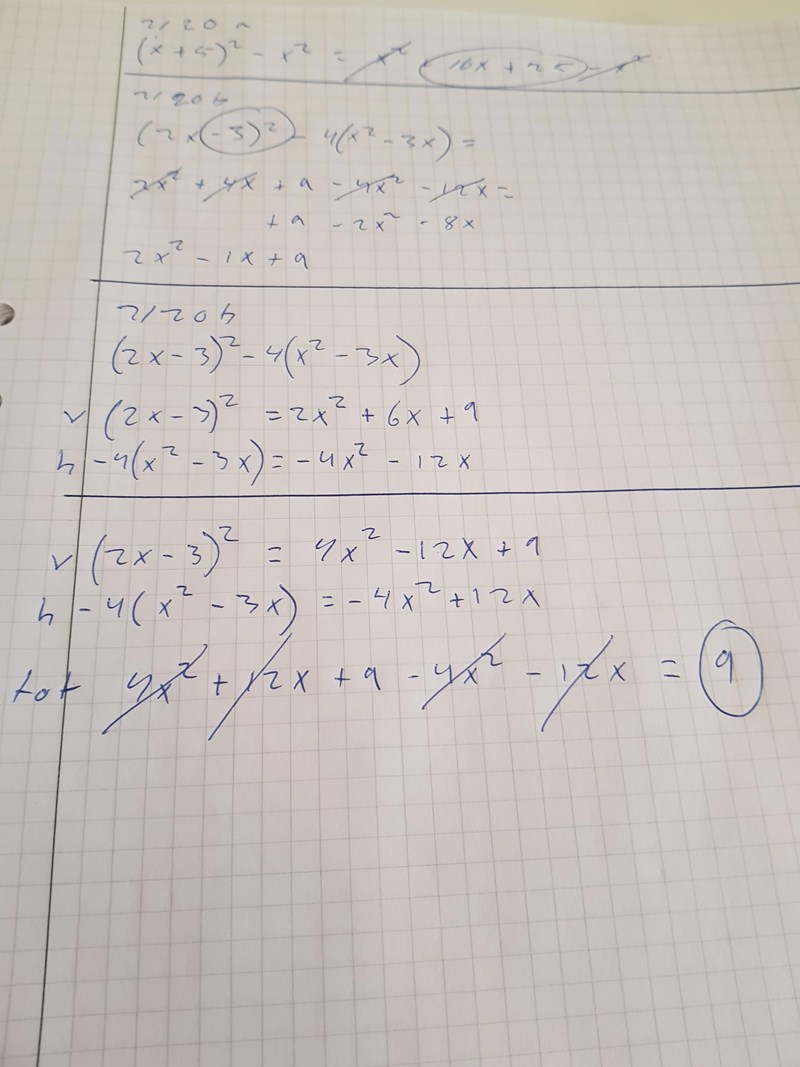 2120 a
(x + 5)² - x² = x² + 10x + 25 - x²
2120 b
(2x - 3)² - 4(x² - 3x) =
2x² + 4x + 9 - 4x² - 12x =
+ 9 - 2x² - 8x
2x² - 1x + 9
2120 b
(2x - 3)² - 4(x² - 3x)
v (2x - 3)² = 2x² + 6x + 9
h - 4(x² - 3x) = - 4x² - 12x
v (2x - 3)² = 4x² - 12x + 9
h - 4(x² - 3x) = - 4x² + 12x
tot 4x² + 12x + 9 - 4x² - 12x = 9